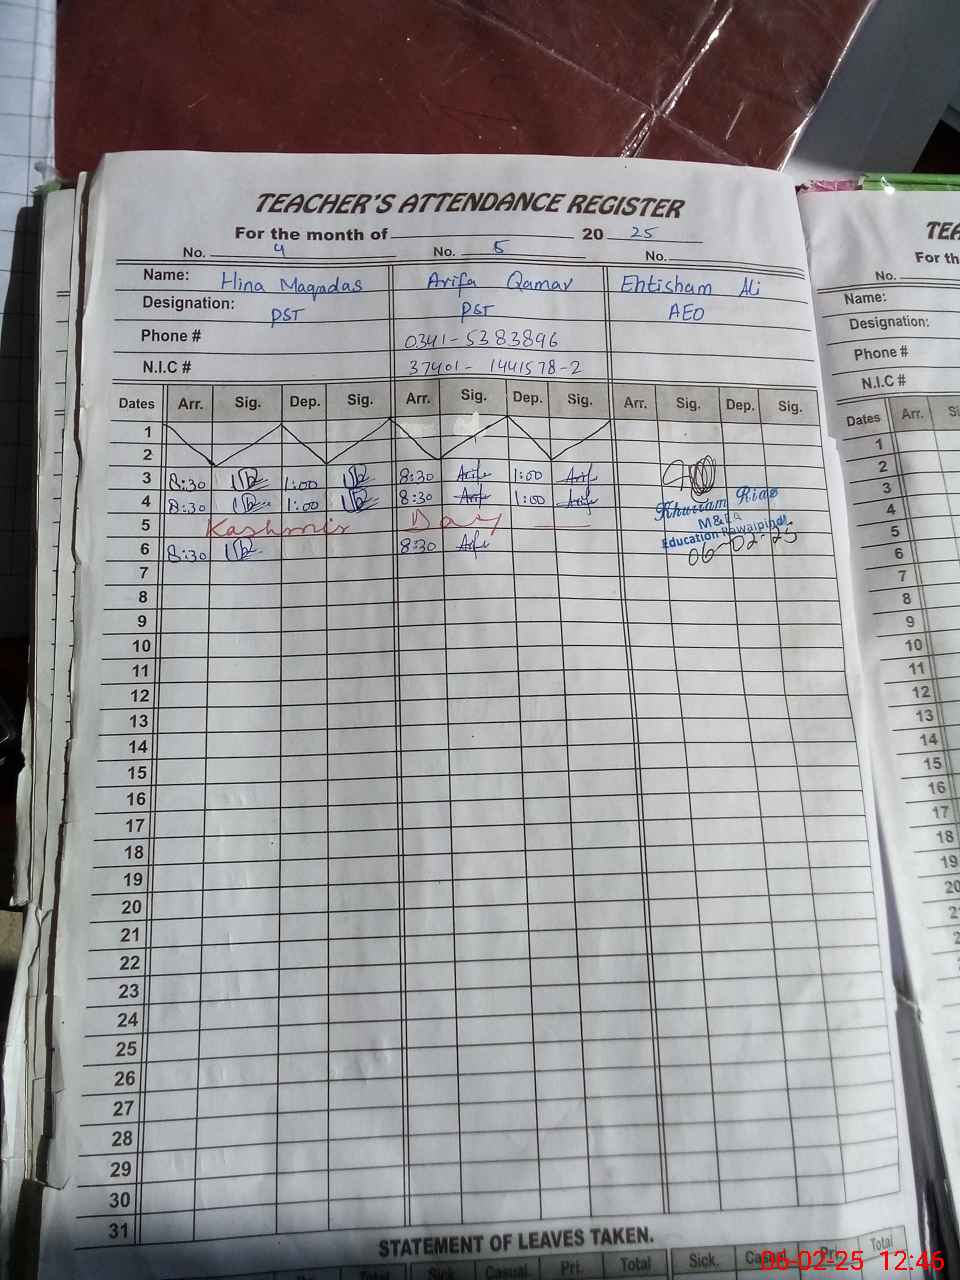 TEACHER'S ATTENDANCE REGISTER
For the month of 20 25
No. 4 No. 5 No.
Name: Hina Maqadas Arifa Qamar Ehtisham Ali
Designation: PST PST AEO
Phone # 0341-5383896
N.I.C # 37401-1441578-2
Dates Arr. Sig. Dep. Sig. Arr. Sig. Dep. Sig. Arr. Sig. Dep. Sig.
1
2
3 8:30 1:00 8:30 Arif 1:00 Arif
4 8:30 1:00 8:30 Arif 1:00 Arif
5 Kashmir Day
6 8:30 8:30 Arif
Khurram Riaz
M&EA
Education Rawalpindi
06-02-25
7
8
9
10
11
12
13
14
15
16
17
18
19
20
21
22
23
24
25
26
27
28
29
30
31
STATEMENT OF LEAVES TAKEN.
Total Sick Casual Pri. Total Sick. Total
TEA
For th
No.
Name:
Designation:
Phone #
N.I.C #
Dates Arr.
1
2
3
4
5
6
7
8
9
10
11
12
13
14
15
16
17
18
19
20
06-02-25 12:46